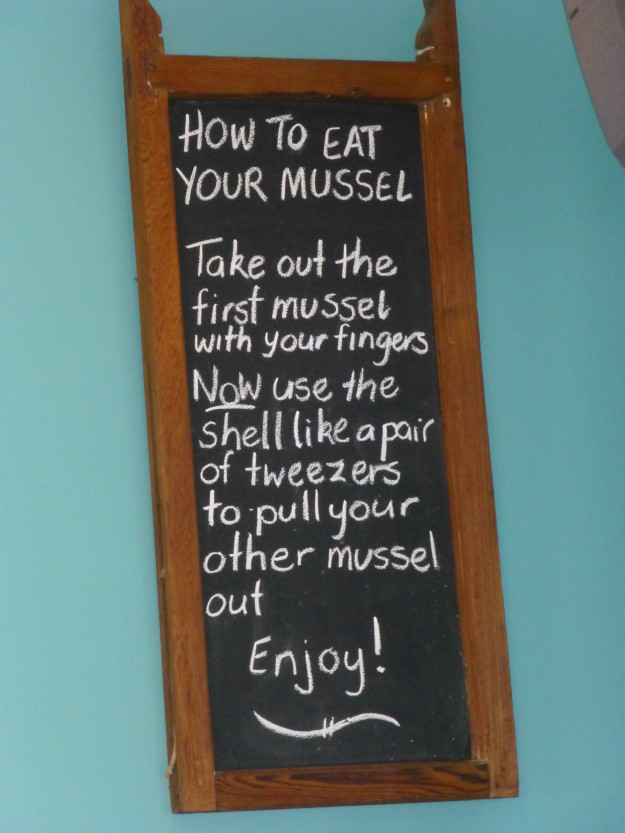 HOW TO EAT
YOUR MUSSEL
Take out the
first mussel
with your fingers
NOW use the
shell like a pair
of tweezers
to pull your
other mussel
out
Enjoy!